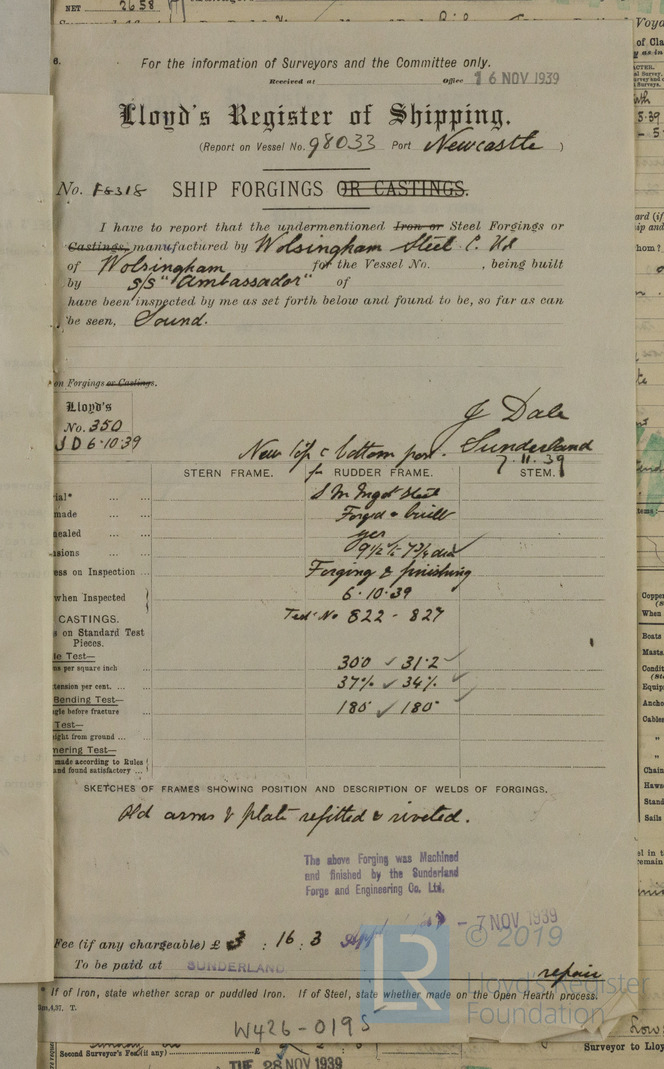 NET 2658
6.
For the information of Surveyors and the Committee only.
Received at Office 16 NOV 1939
Lloyd's Register of Shipping.
(Report on Vessel No. 98033 Port Newcastle )
No. F8318 SHIP FORGINGS OR CASTINGS.
I have to report that the undermentioned Iron or Steel Forgings or
Castings, manufactured by Wolsingham Steel C. Ltd
of Wolsingham for the Vessel No. , being built
by S/S "Ambassador" of
have been inspected by me as set forth below and found to be, so far as can
be seen, Sound.
on Forgings or Castings.
Lloyd's
No. 350
J D 6.10.39
J Dale
New top & bottom par. Sunderland
7.11.39
STERN FRAME. for RUDDER FRAME. STEM.
ial* ... ... S M Ingot Steel
made ... ... Forged & built
ealed ... ... yes
sions ... ... 9½ 7¾ dia
ess on Inspection ... Forging & finishing
when Inspected 6.10.39
CASTINGS. Test No 822 - 827
s on Standard Test
Pieces.
le Test—
ns per square inch ... 30.0 ✓ 31.2 ✓
tension per cent. ... ... 37% ✓ 34% ✓
Bending Test—
gle before fracture 180° ✓ 180°
Test—
ight from ground ... ...
mering Test—
made according to Rules
and found satisfactory ...
SKETCHES OF FRAMES SHOWING POSITION AND DESCRIPTION OF WELDS OF FORGINGS.
Old arms & plate refitted & riveted.
The above Forging was Machined
and finished by the Sunderland
Forge and Engineering Co. Ltd.
- 7 NOV 1939
Fee (if any chargeable) £ 3 : 16 : 3
© 2019
To be paid at SUNDERLAND
repair
LR
Lloyd's Register
Foundation
* If of Iron, state whether scrap or puddled Iron. If of Steel, state whether made on the Open Hearth process.
W426-0195
Second Surveyor's Fee (if any) £
TUE 28 NOV 1939
Surveyor to Lloy
Voya
of Cla
Coppe
When
Boats
Masts
Condit
Equip
Ancho
Cables
"
"
Chain
Haws
Stand
Sails